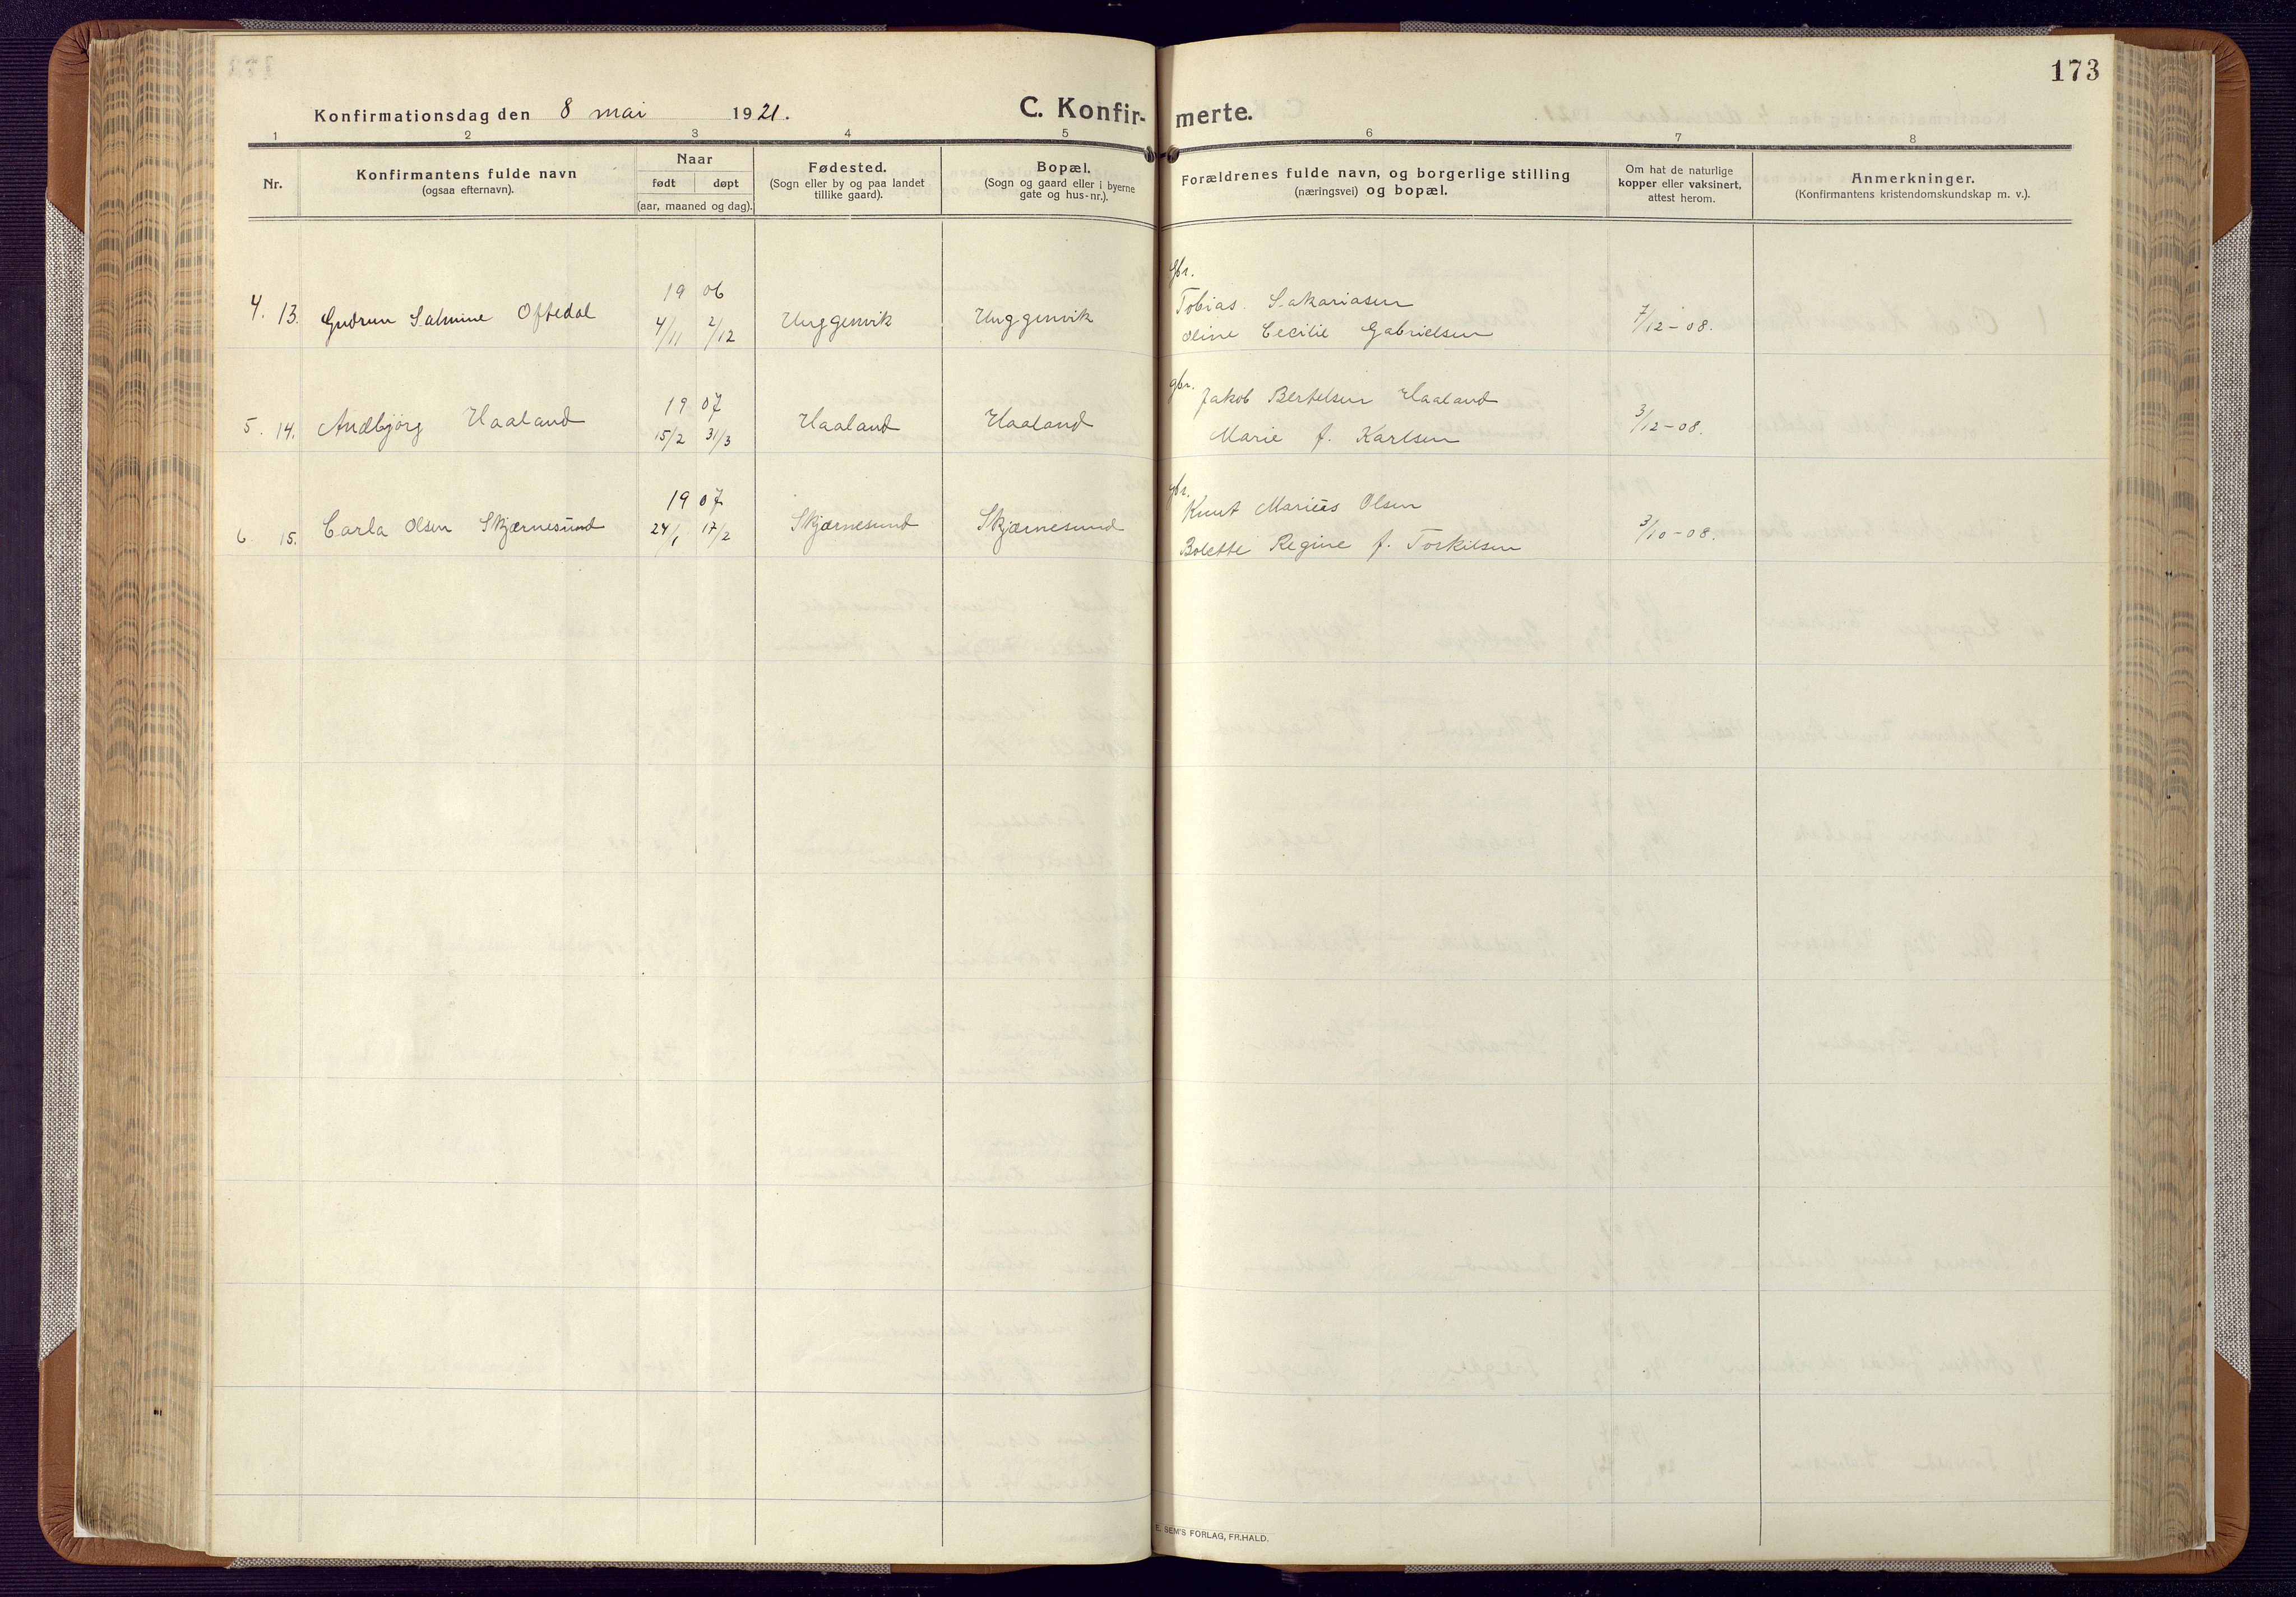 173
Konfirmationsdag den 8 mai 1921.
C. Konfir- merte.
1 2 3 4 5 6 7 8
Nr.
Konfirmantens fulde navn
(ogsaa efternavn).
Naar
født døpt
(aar, maaned og dag).
Fødested.
(Sogn eller by og paa landet
tillike gaard).
Bopæl.
(Sogn og gaard eller i byerne
gate og hus-nr.).
Forældrenes fulde navn, og borgerlige stilling
(næringsvei) og bopæl.
Om hat de naturlige
kopper eller vaksinert,
attest herom.
Anmerkninger.
(Konfirmantens kristendomskundskap m. v.).
gbr.
19 06
Tobias Sakariasen
4. 13. Gudrun Salmine Oftedal 4/11 2/12 Unggenvik Unggenvik Oline Cecilie Gabrielsen 7/12-08.
gbr.
19 07
Jakob Bertelsen Haaland
5. 14. Andbjørg Haaland 15/2 31/3 Haaland Haaland Marie f. Karlsen 3/12-08.
gbr.
19 07
Knut Marius Olsen
6 15. Carla Olsen Skjærnesund 24/1 17/2 Skjærnesund Skjærnesund Bolette Regine f. Torkilsen 3/10-08.
E. SEM'S FORLAG, FR.HALD.